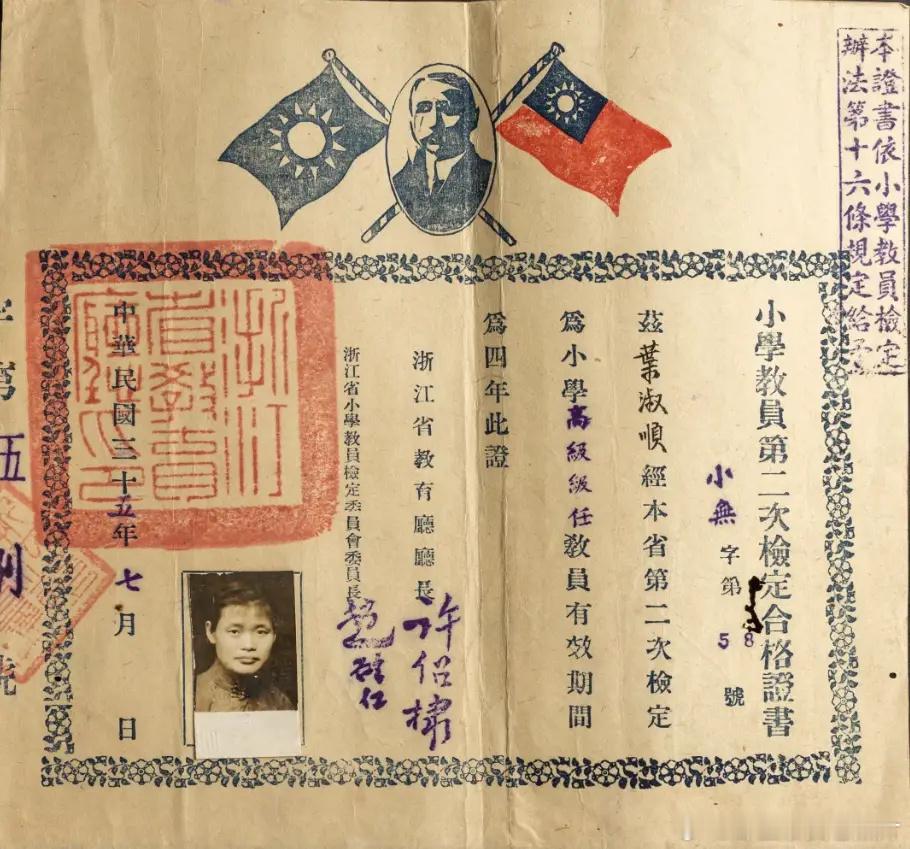 本證書依小學教員檢定
辦法第十六條規定給予
小學教員第二次檢定合格證書
小無字第58號
茲葉淑順經本省第二次檢定
為小學高級級任教員有效期間
為四年此證
浙江省教育廳廳長許紹棣
浙江省小學教員檢定委員會委員長
中華民國三十五年七月 日
浙江
省教育
廳印
伍
號